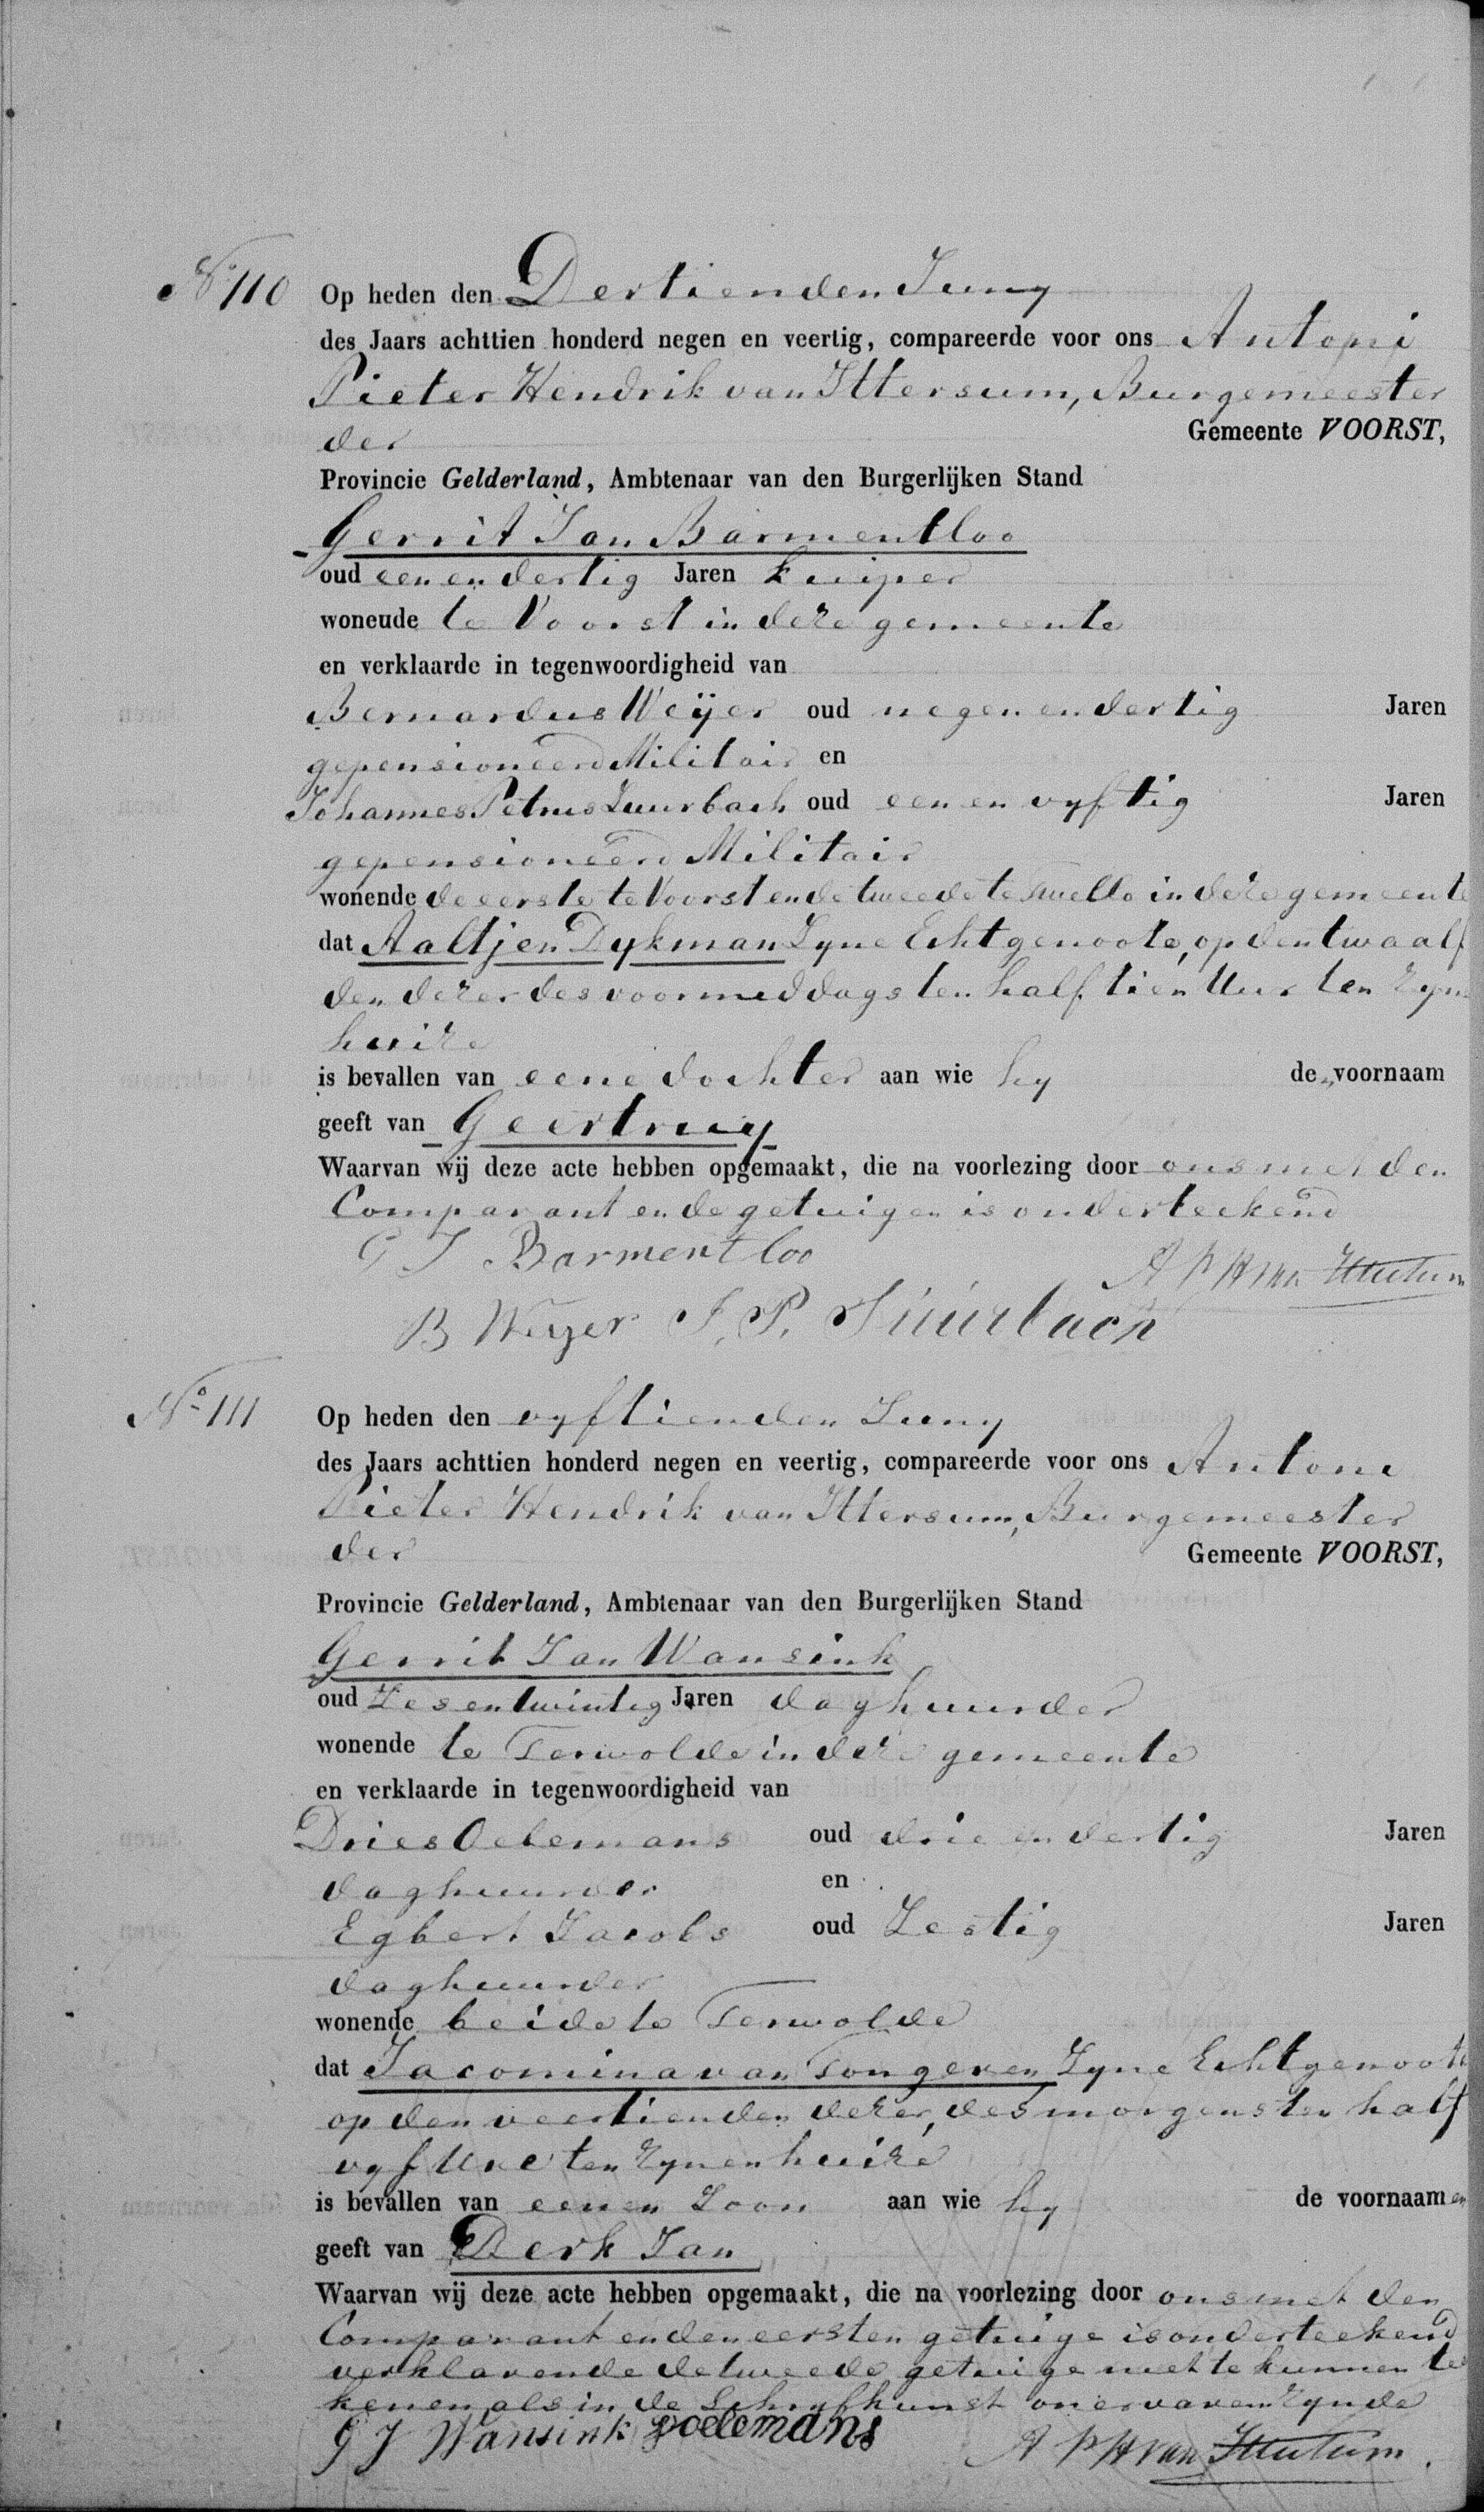 No 110 Op heden den Dertienden Juny
des Jaars achttien honderd negen en veertig, compareerde voor ons Antoni
Pieter Hendrik van Ittersum, Burgemeester
der Gemeente VOORST,
Provincie Gelderland, Ambtenaar van den Burgerlijken Stand
Gerrit Jan Barmentloo
oud een en dertig Jaren kuiper
wonende te Voorst in deze gemeente
en verklaarde in tegenwoordigheid van
Bernardus Weÿer oud negen en dertig Jaren
gepensioneerd Militair en
Johannes Petrus Zuurbach oud een en vyftig Jaren
gepensioneerd Militair
wonende de eerste te Voorst en de tweede te Twello in deze gemeente
dat Aaltjen Dykman Zyne Echtgenoote, op den twaalf
den dezer des voormiddags ten half tien Uur ten zyn
huize
is bevallen van eene dochter aan wie hy den voornaam
geeft van Geertruy
Waarvan wij deze acte hebben opgemaakt, die na voorlezing door ons met den
Comparant en de getuigen is onderteekend
G J Barmentloo A P H van Ittersum
B Weyer J. P. Zuurbach
No 111 Op heden den vyftienden Juny
des Jaars achttien honderd negen en veertig, compareerde voor ons Antoni
Pieter Hendrik van Ittersum, Burgemeester
der Gemeente VOORST,
Provincie Gelderland, Ambtenaar van den Burgerlijken Stand
Gerrit Jan Wansink
oud Zes en twintig Jaren daghuurder
wonende te Terwolde in deze gemeente
en verklaarde in tegenwoordigheid van
Dries Oelemans oud drie en dertig Jaren
daghuurder en
Egbert Jacobs oud Zestig Jaren
daghuurder
wonende beide te Terwolde
dat Jacomina van Tongeren Zyne Echtgenoote
op den veertienden dezer, des morgens ten half
vyf Ure ten zynen huize
is bevallen van eenen Zoon aan wie hy de voornaamen
geeft van Derk Jan
Waarvan wij deze acte hebben opgemaakt, die na voorlezing door ons met den
Comparant en den eersten getuige is onderteekend
verklarende de tweede getuige niet te kunnen te
kenen als in de Schryfkunst onervaren zynde
G J Wansink oelemans A P H van Ittersum.